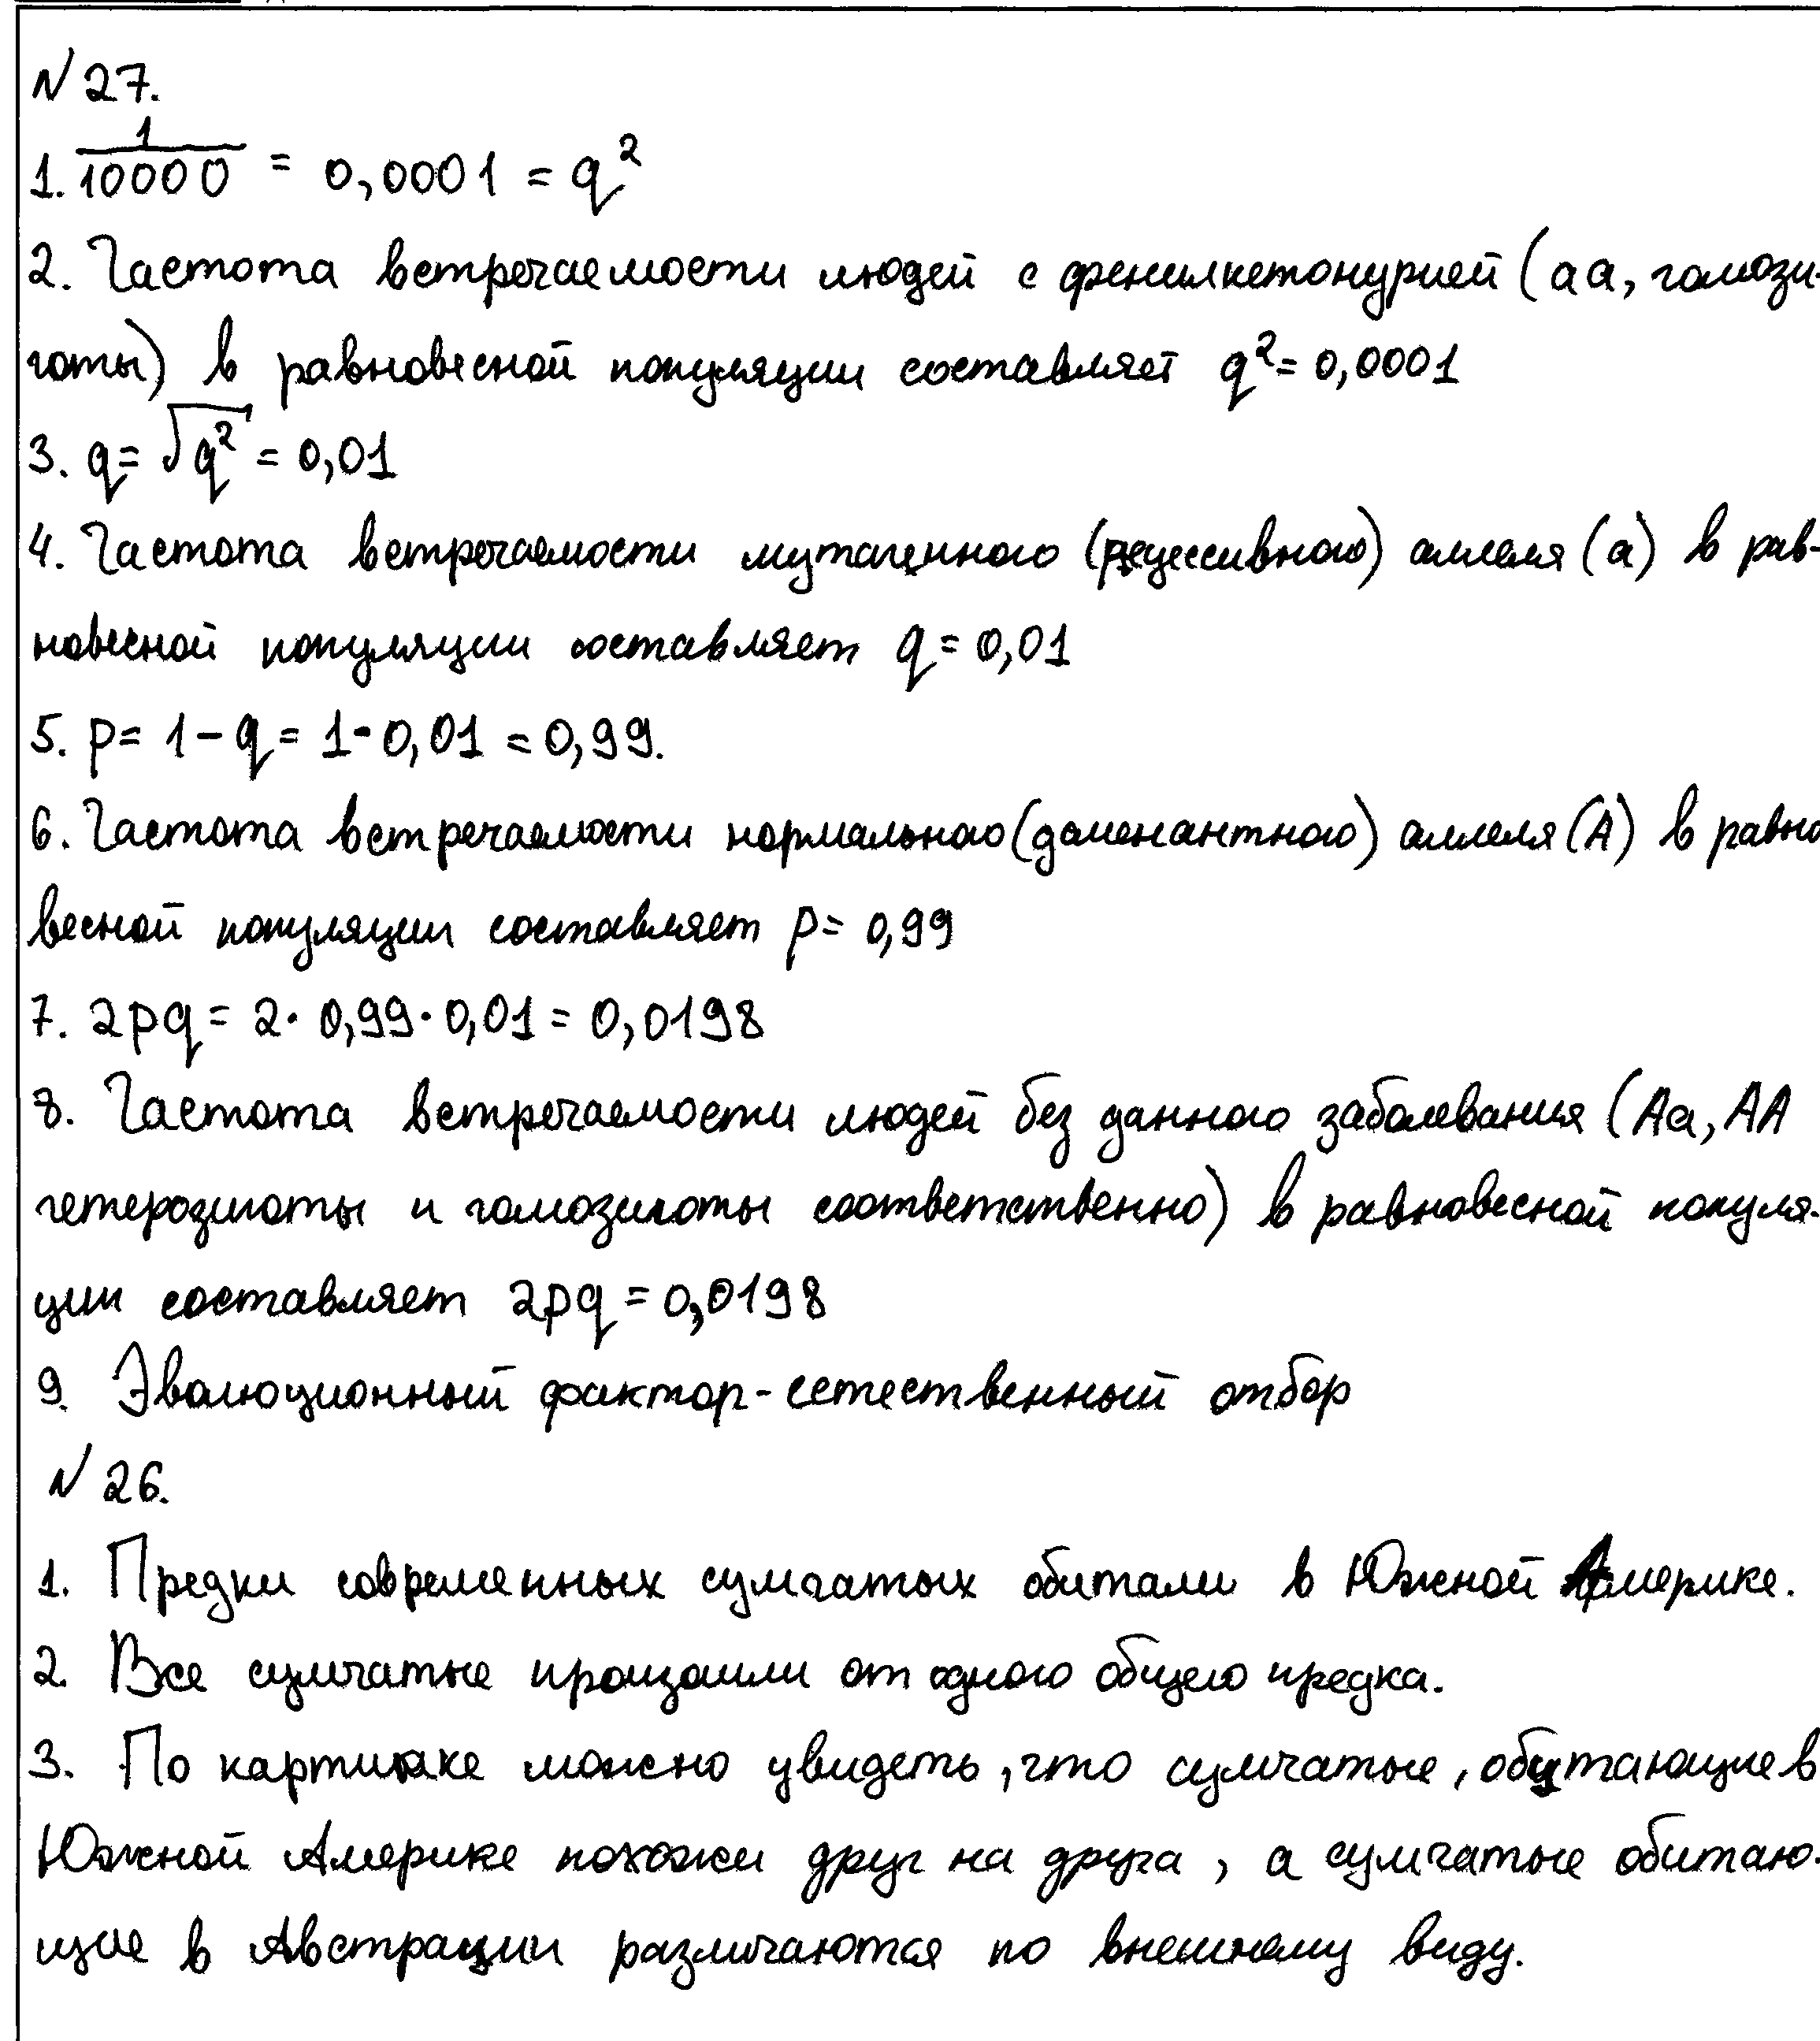 N 27.
1. 1/10000 = 0,0001 = q²
2. Частота встречаемости людей с фенилкетонурией (аа, гомози-
готы) в равновесной популяции составляет q² = 0,0001
3. q = √q² = 0,01
4. Частота встречаемости мутагенного (рецессивного) аллеля (а) в рав-
новесной популяции составляет q = 0,01
5. p = 1 - q = 1 - 0,01 = 0,99.
6. Частота встречаемости нормального (доменантного) аллеля (А) в равно
весной популяции составляет p = 0,99
7. 2pq = 2 · 0,99 · 0,01 = 0,0198
8. Частота встречаемости людей без данного заболевания (Аа, АА
гетерозиготы и гомозиготы соответственно) в равновесной популя-
ции составляет 2pq = 0,0198
9. Эволюционный фактор - естественный отбор
N 26.
1. Предки современных сумчатых обитали в Южной Америке.
2. Все сумчатые произошли от одного общего предка.
3. По картинке можно увидеть, что сумчатые, обитающие в
Южной Америке похожи друг на друга, а сумчатые обитаю-
щие в Австрации различаются по внешнему виду.